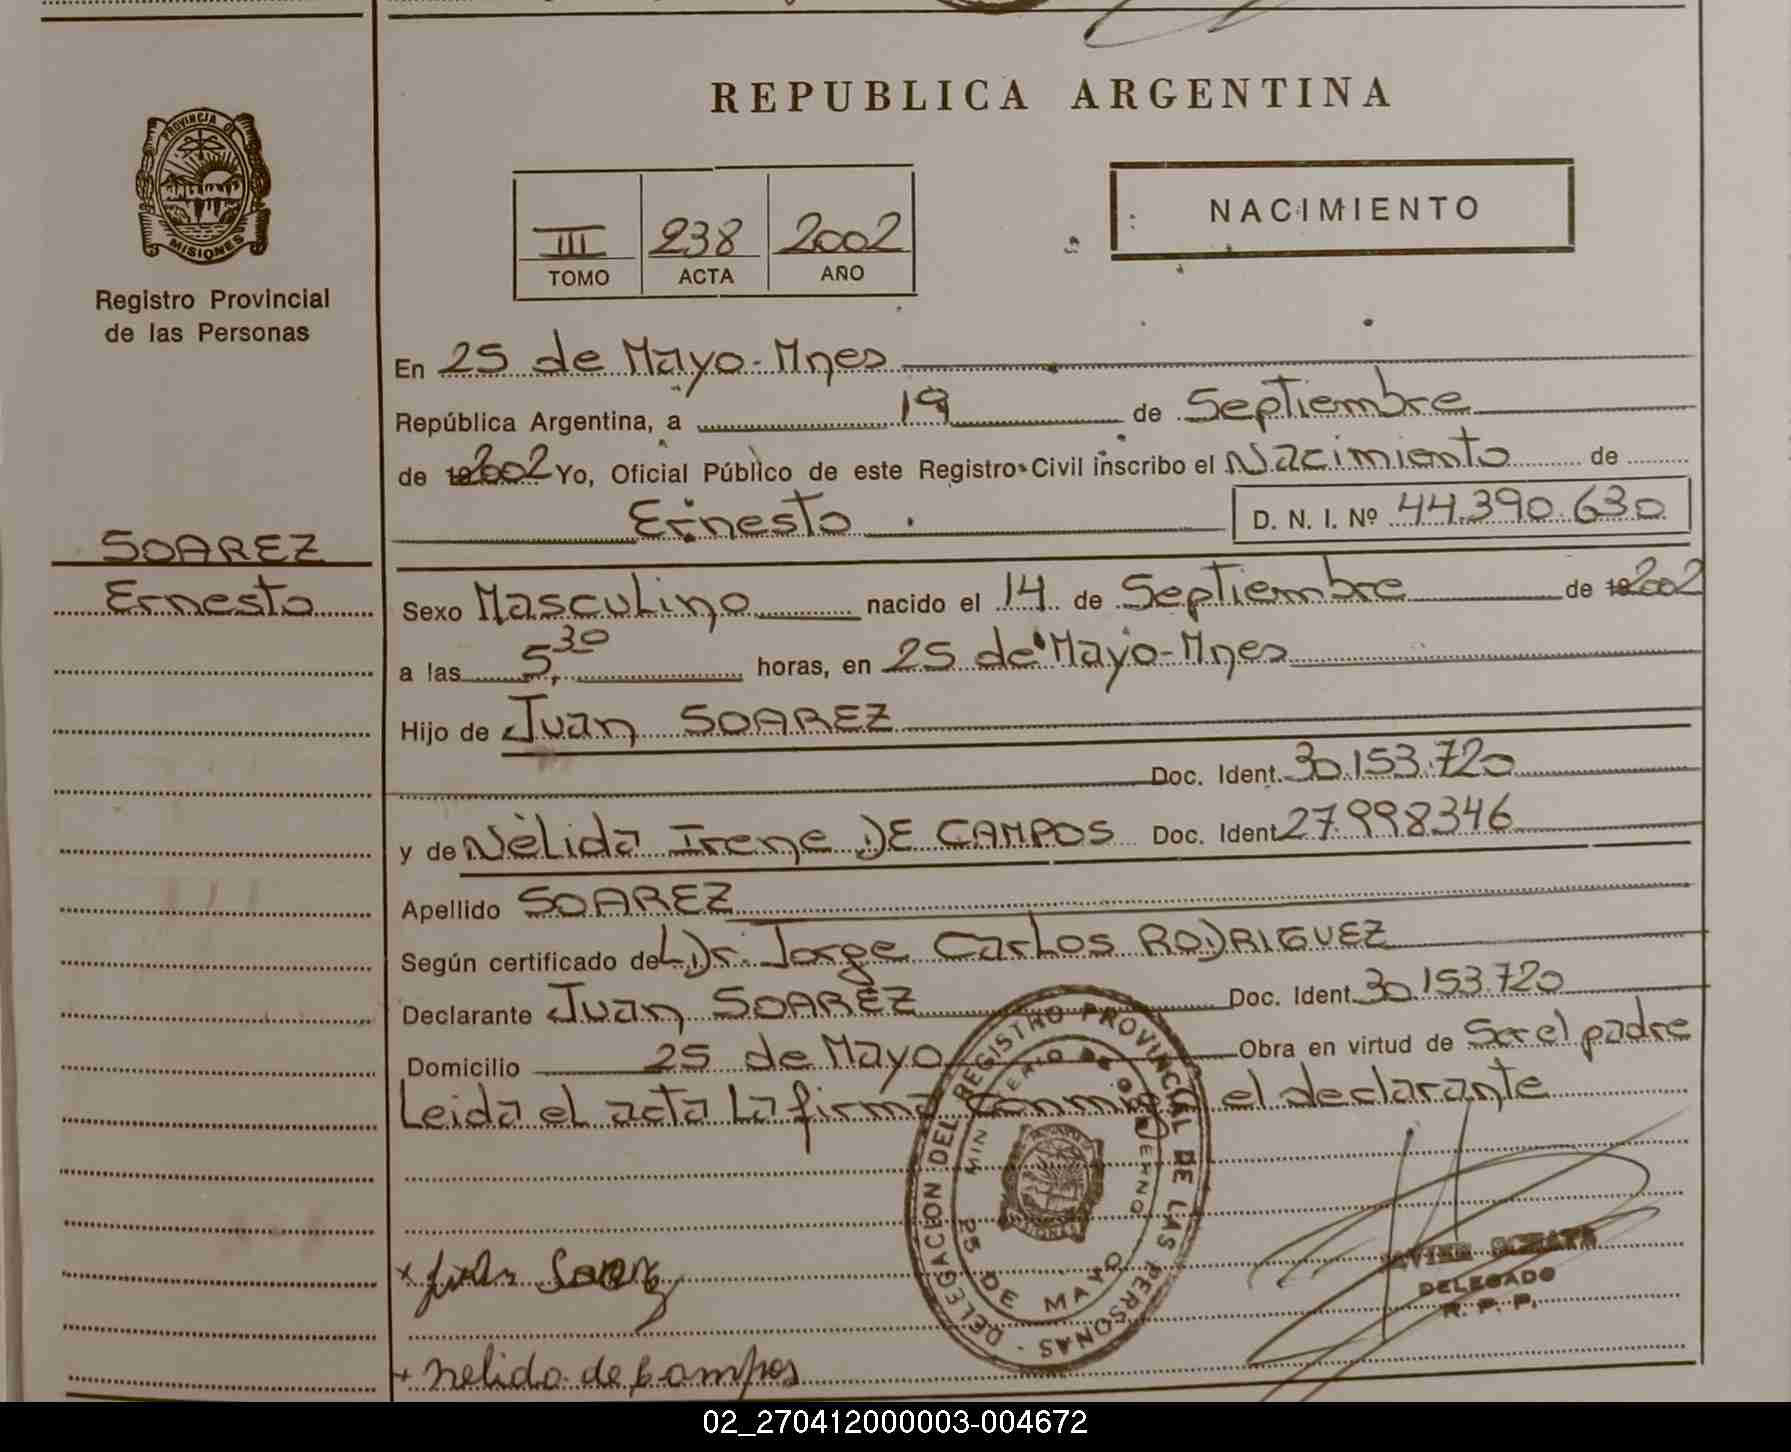 REPUBLICA ARGENTINA
PROVINCIA DE
MISIONES
Registro Provincial
de las Personas
III 238 2002
TOMO ACTA AÑO
NACIMIENTO
En 25 de Mayo - Mnes
República Argentina, a 19 de Septiembre
de 2002 Yo, Oficial Público de este Registro Civil inscribo el Nacimiento de
Ernesto D. N. I. Nº 44.390.630
SOAREZ
Ernesto
Sexo Masculino nacido el 14 de Septiembre de 2002
a las 5,30 horas, en 25 de Mayo - Mnes
Hijo de Juan SOAREZ
Doc. Ident. 30.153.720
y de Nélida Irene DE CAMPOS Doc. Ident 27.998346
Apellido SOAREZ
Según certificado del Dr. Jorge Carlos RODRIGUEZ
Declarante Juan SOAREZ Doc. Ident. 30.153.720
Domicilio 25 de Mayo Obra en virtud de Ser el padre
Leida el acta la firma conmigo el declarante
DELEGACION DEL REGISTRO PROVINCIAL DE LAS PERSONAS
MINISTERIO DE GOBIERNO
25 DE MAYO
DELEGADO
R. P. P.
x Juan Soarez
+ nelida de campos
02_270412000003-004672